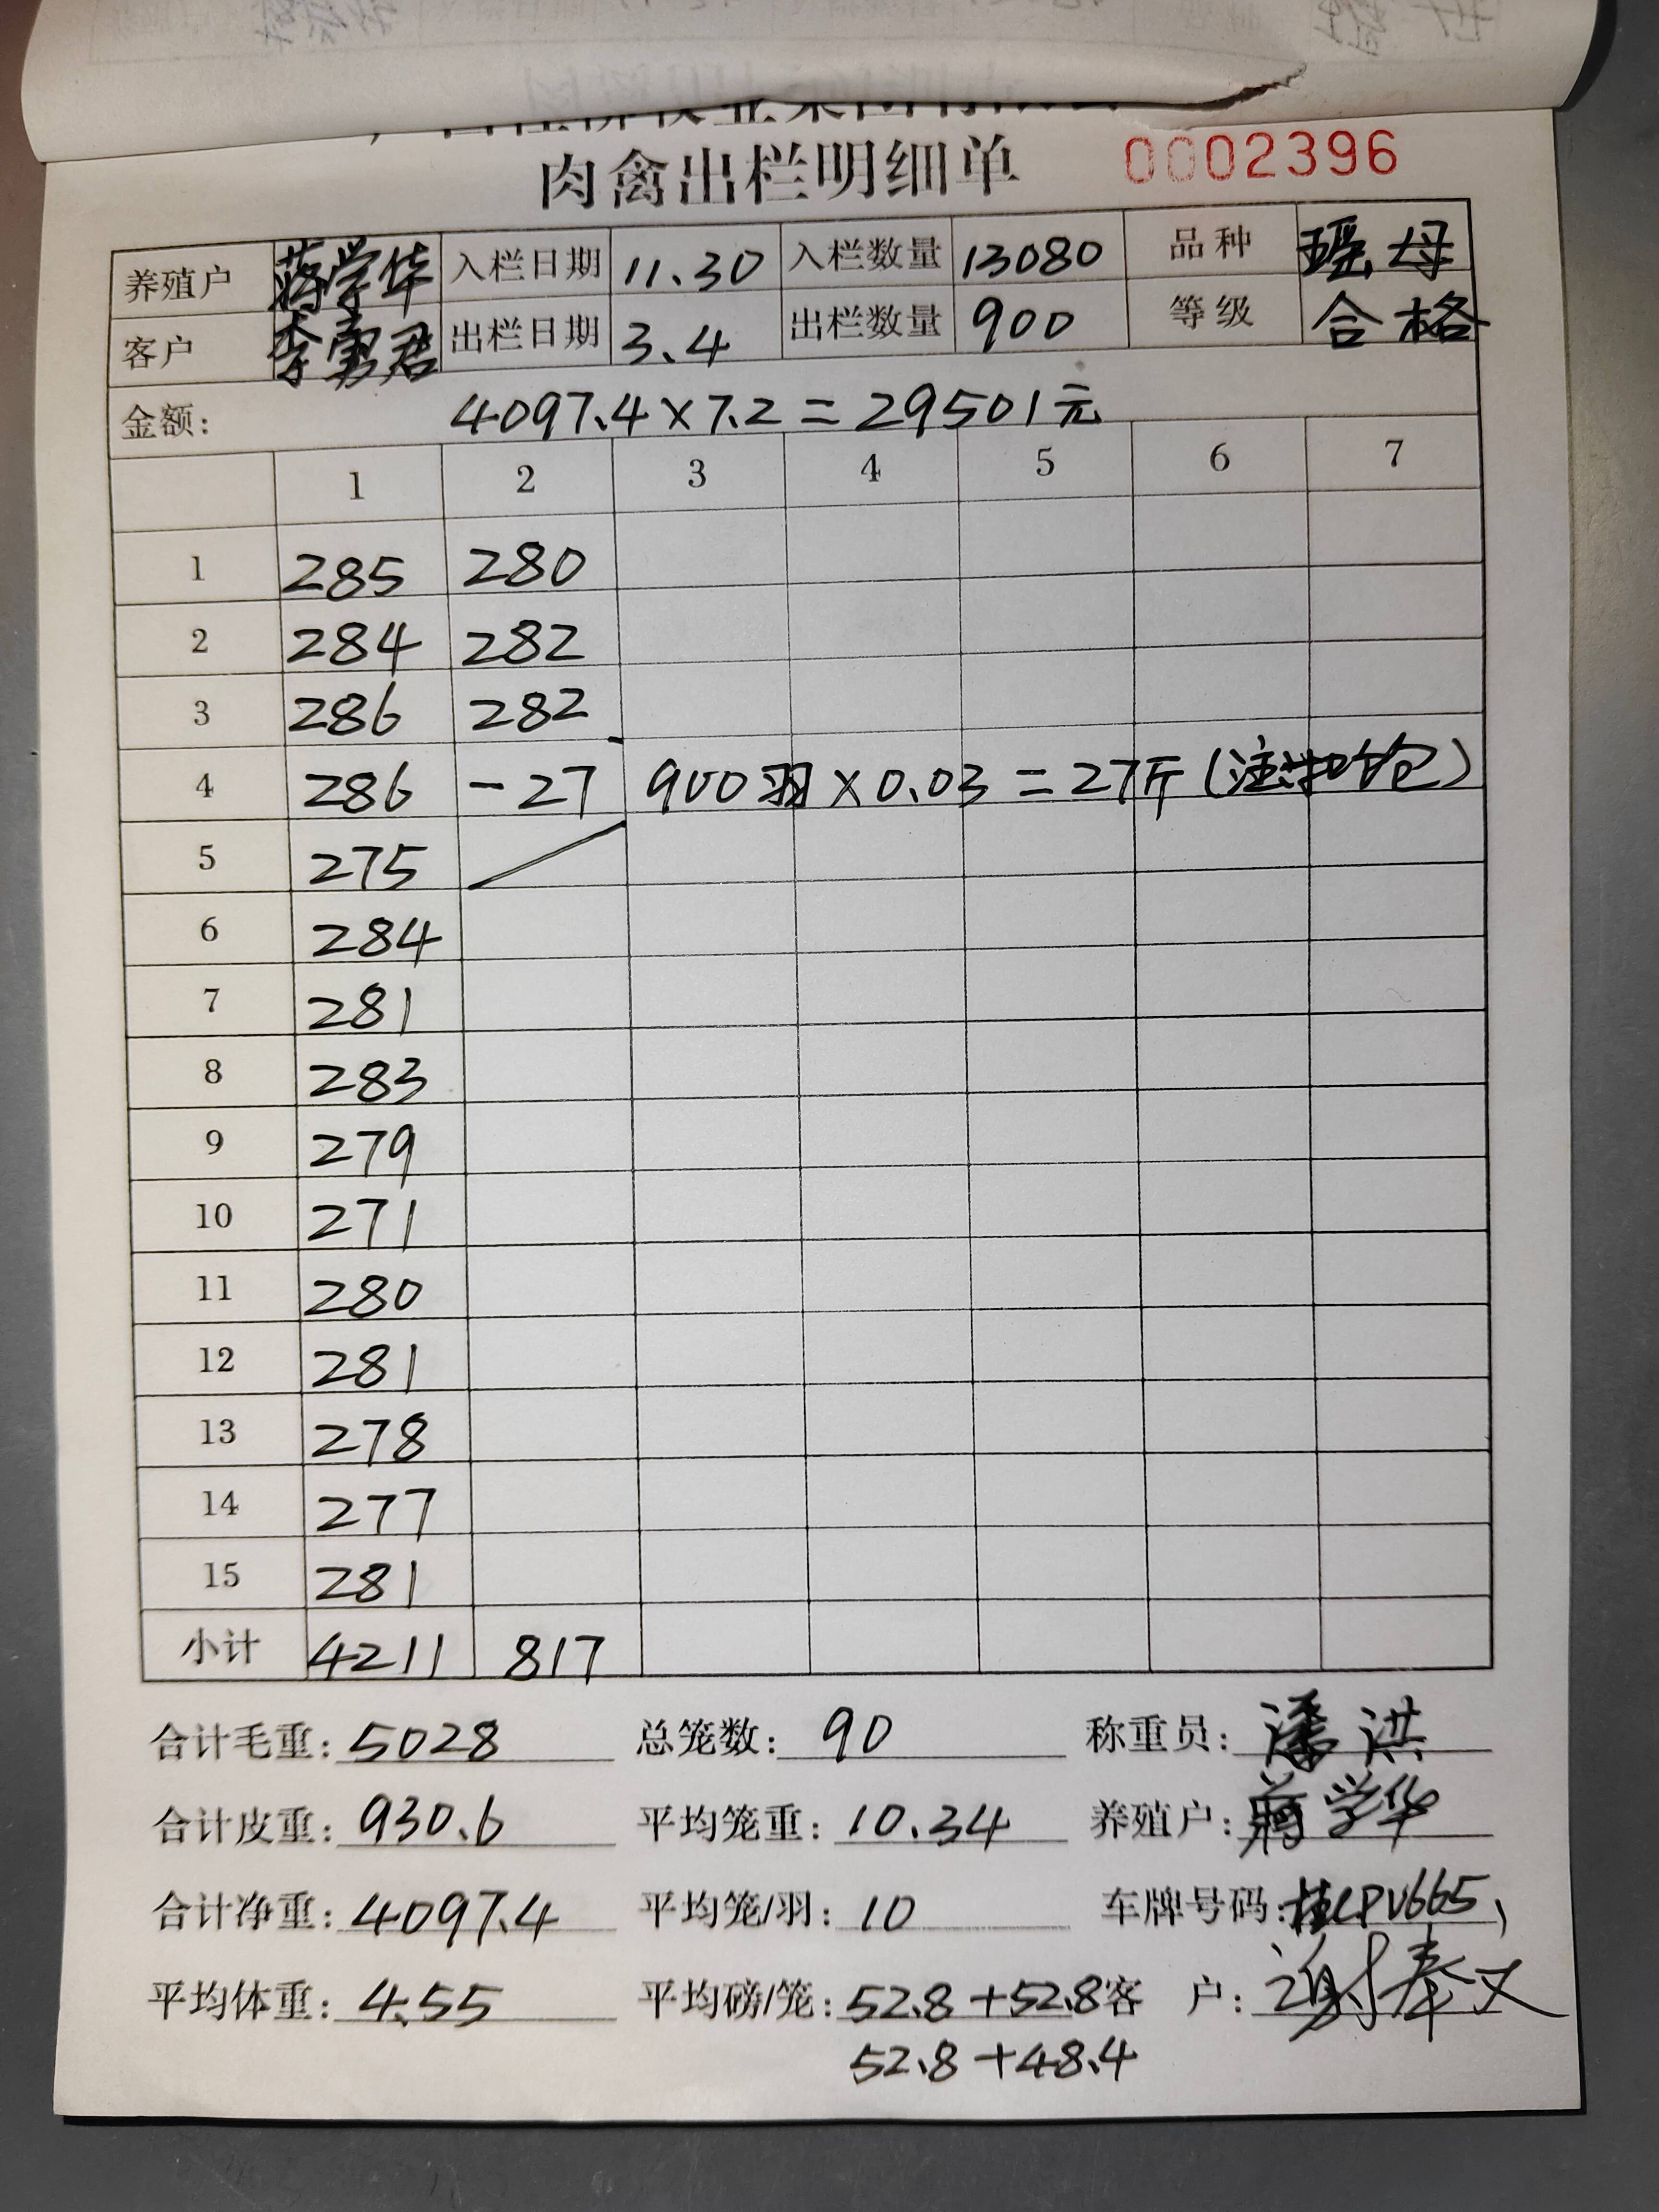 肉禽出栏明细单 0002396
养殖户 蒋学华 入栏日期 11.30 入栏数量 13080 品种 瑶母
客户 李勇君 出栏日期 3.4 出栏数量 900 等级 合格
金额: 4097.4×7.2=29501元
1 2 3 4 5 6 7
1 285 280
2 284 282
3 286 282
4 286 -27 900羽×0.03=27斤(注
5 275
6 284
7 281
8 283
9 279
10 271
11 280
12 281
13 278
14 277
15 281
小计 4211 817
合计毛重: 5028 总笼数: 90 称重员: 潘洪
合计皮重: 930.6 平均笼重: 10.34 养殖户: 蒋学华
合计净重: 4097.4 平均笼/羽: 10 车牌号码:
平均体重: 4.55 平均磅/笼: 52.8+52.8 客户: 谢奉又
52.8+48.4